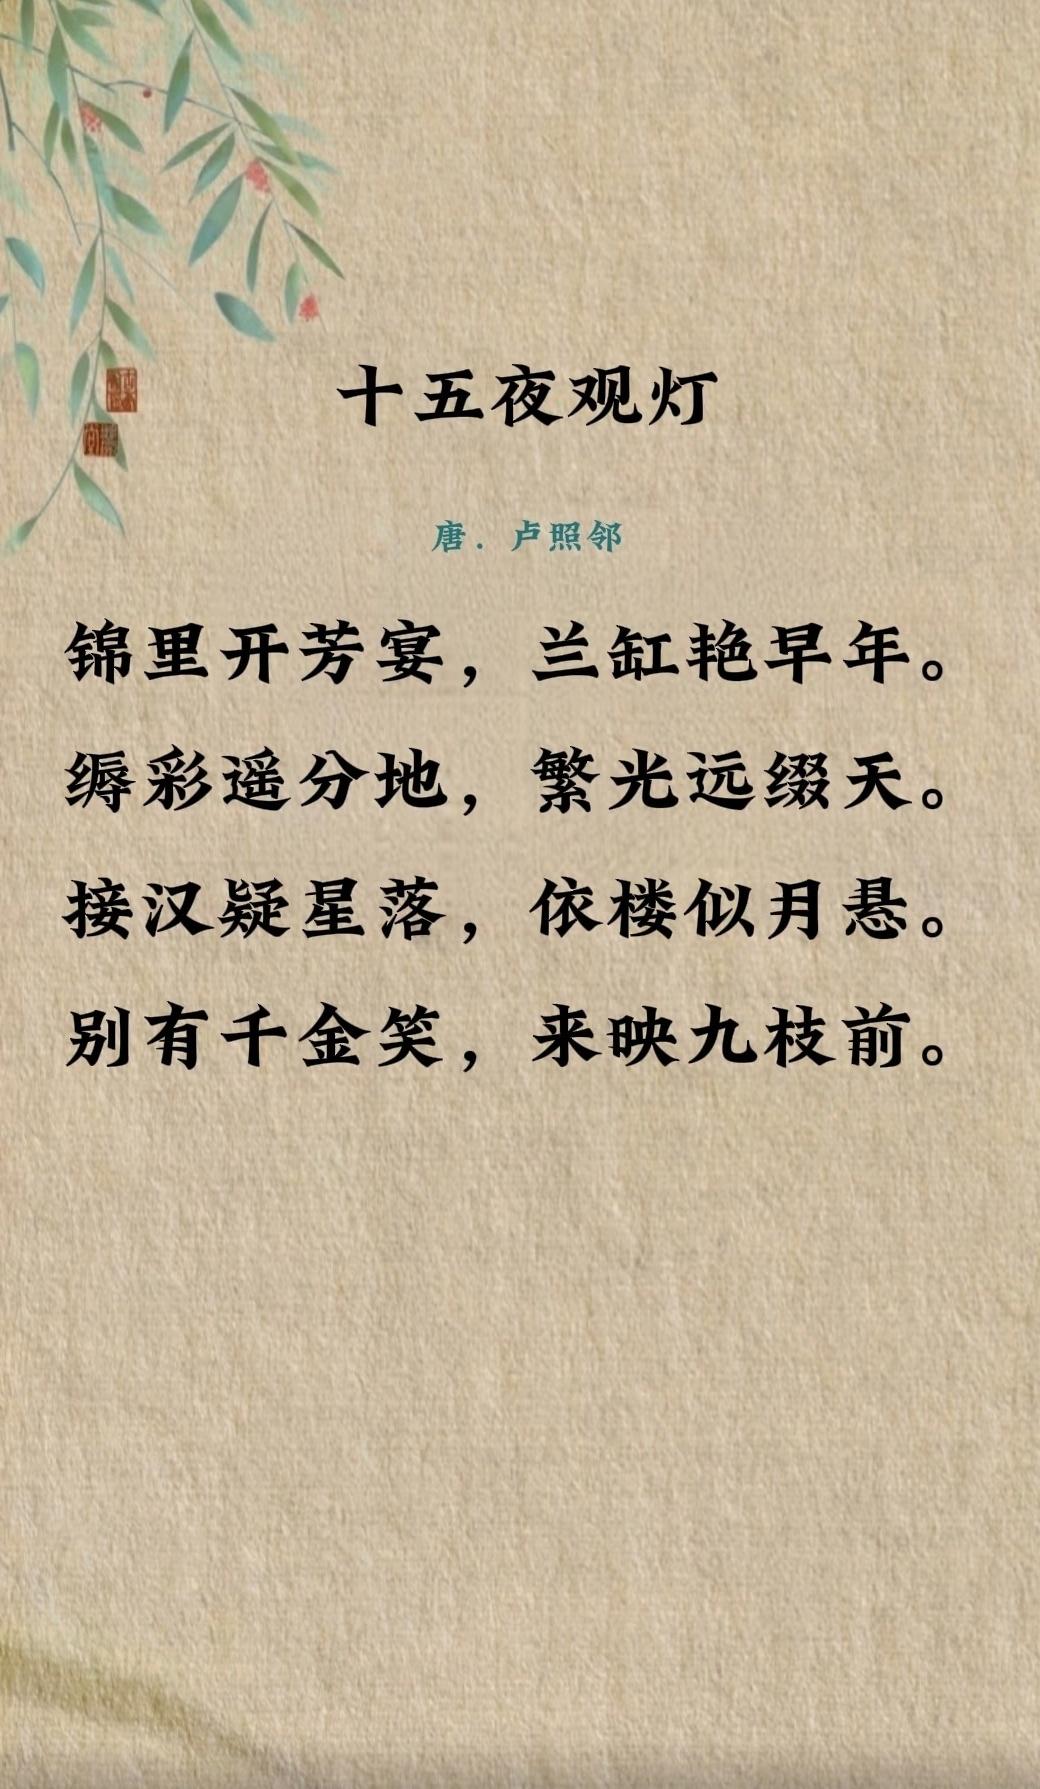 十五夜观灯
唐．卢照邻
锦里开芳宴，兰缸艳早年。
缛彩遥分地，繁光远缀天。
接汉疑星落，依楼似月悬。
别有千金笑，来映九枝前。